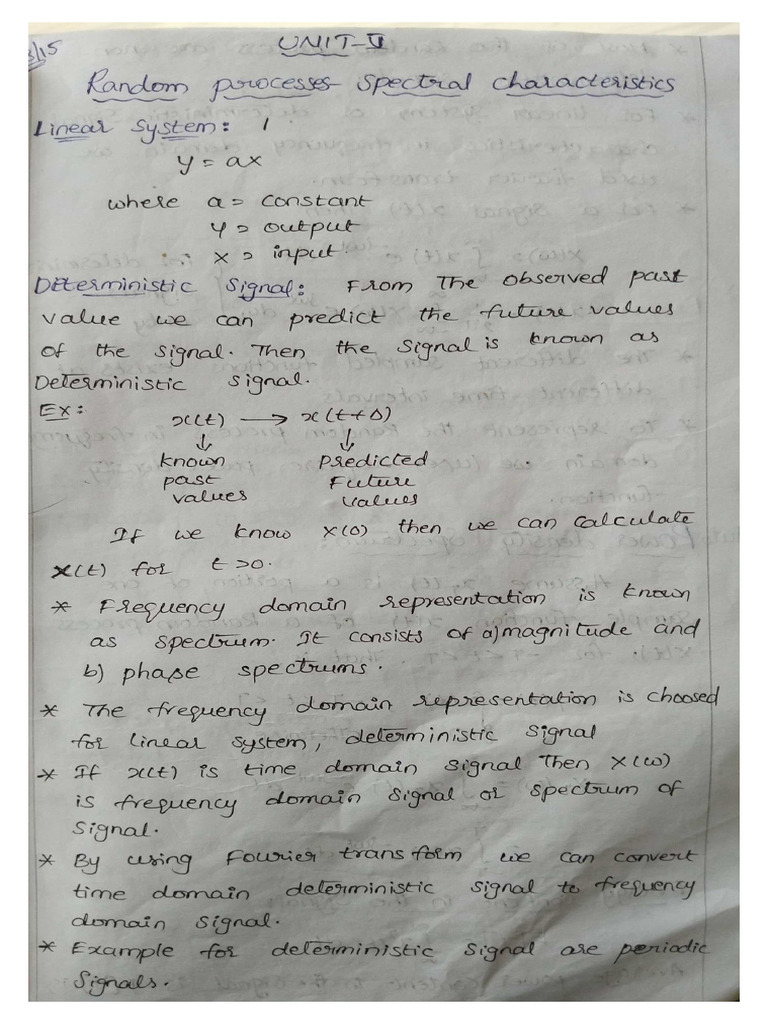 3/15
UNIT-V
Random processes Spectral characteristics
Linear System:
y = ax
where a = constant
y = output
x = input.
Deterministic Signal: From The observed past
value we can predict the future values
of the signal. Then the signal is known as
Deterministic signal.
Ex:
x(t) → x(t+Δ)
↓ ↓
known Predicted
past Future
values values
If we know x(0) then we can calculate
x(t) for t>0.
* Frequency domain representation is known
as spectrum. It consists of a) magnitude and
b) phase spectrums.
* The frequency domain representation is choosed
for linear system, deterministic signal
* If x(t) is time domain signal Then X(ω)
is frequency domain signal or spectrum of
signal.
* By using Fourier transform we can convert
time domain deterministic signal to frequency
domain signal.
* Example for deterministic signal are periodic
Signals.